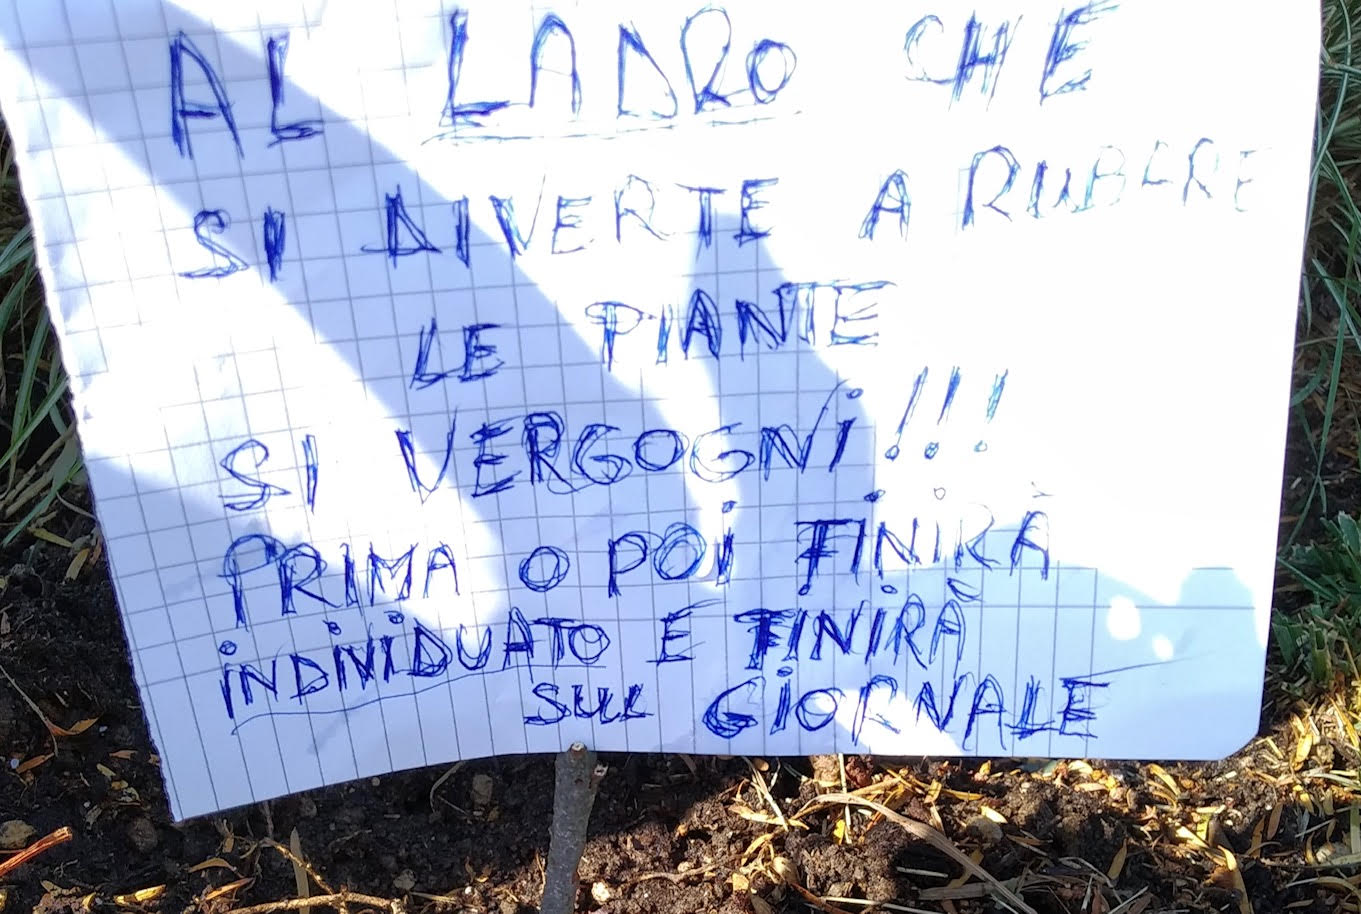 AL LADRO CHE
SI DIVERTE A RUBARE
LE PIANTE
SI VERGOGNi!!!
PRIMA O POi FiNiRÀ
iNDiViDUATO E FiNiRÀ
SUL GiORNALE